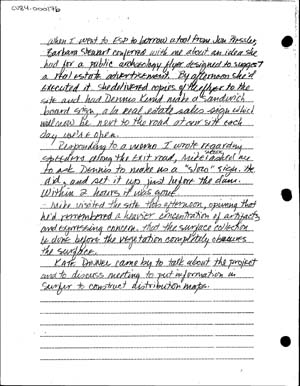 CV84-000176
When I went to ESP to borrow a tool from Jon Pressler,
Barbara Stewart conferred with me about an idea she
had for a public archaeology flyer designed to suggest
a real estate advertisement. By afternoon she'd
executed it. She delivered copies of the flyer to the
site and had Dennis Lund make a sandwich
board sign, a la real estate sales sign which
will now be next to the road at our site each
day we're open.
Responding to a memo I wrote regarding
speeders along the exit road, Mike asked me
to ask Dennis to make us a "slow" sign. He
did, and set it up just before the dam.
Within 2 hours it was gone.
Mike visited the site this afternoon, opining that
he'd remembered a heavier concentration of artifacts
and expressing concern that the surface collection
be done before the vegetation completely obscures
the surface.
Kate came by to talk about the project
and to discuss meeting to put information in
Surfer to construct distribution maps.